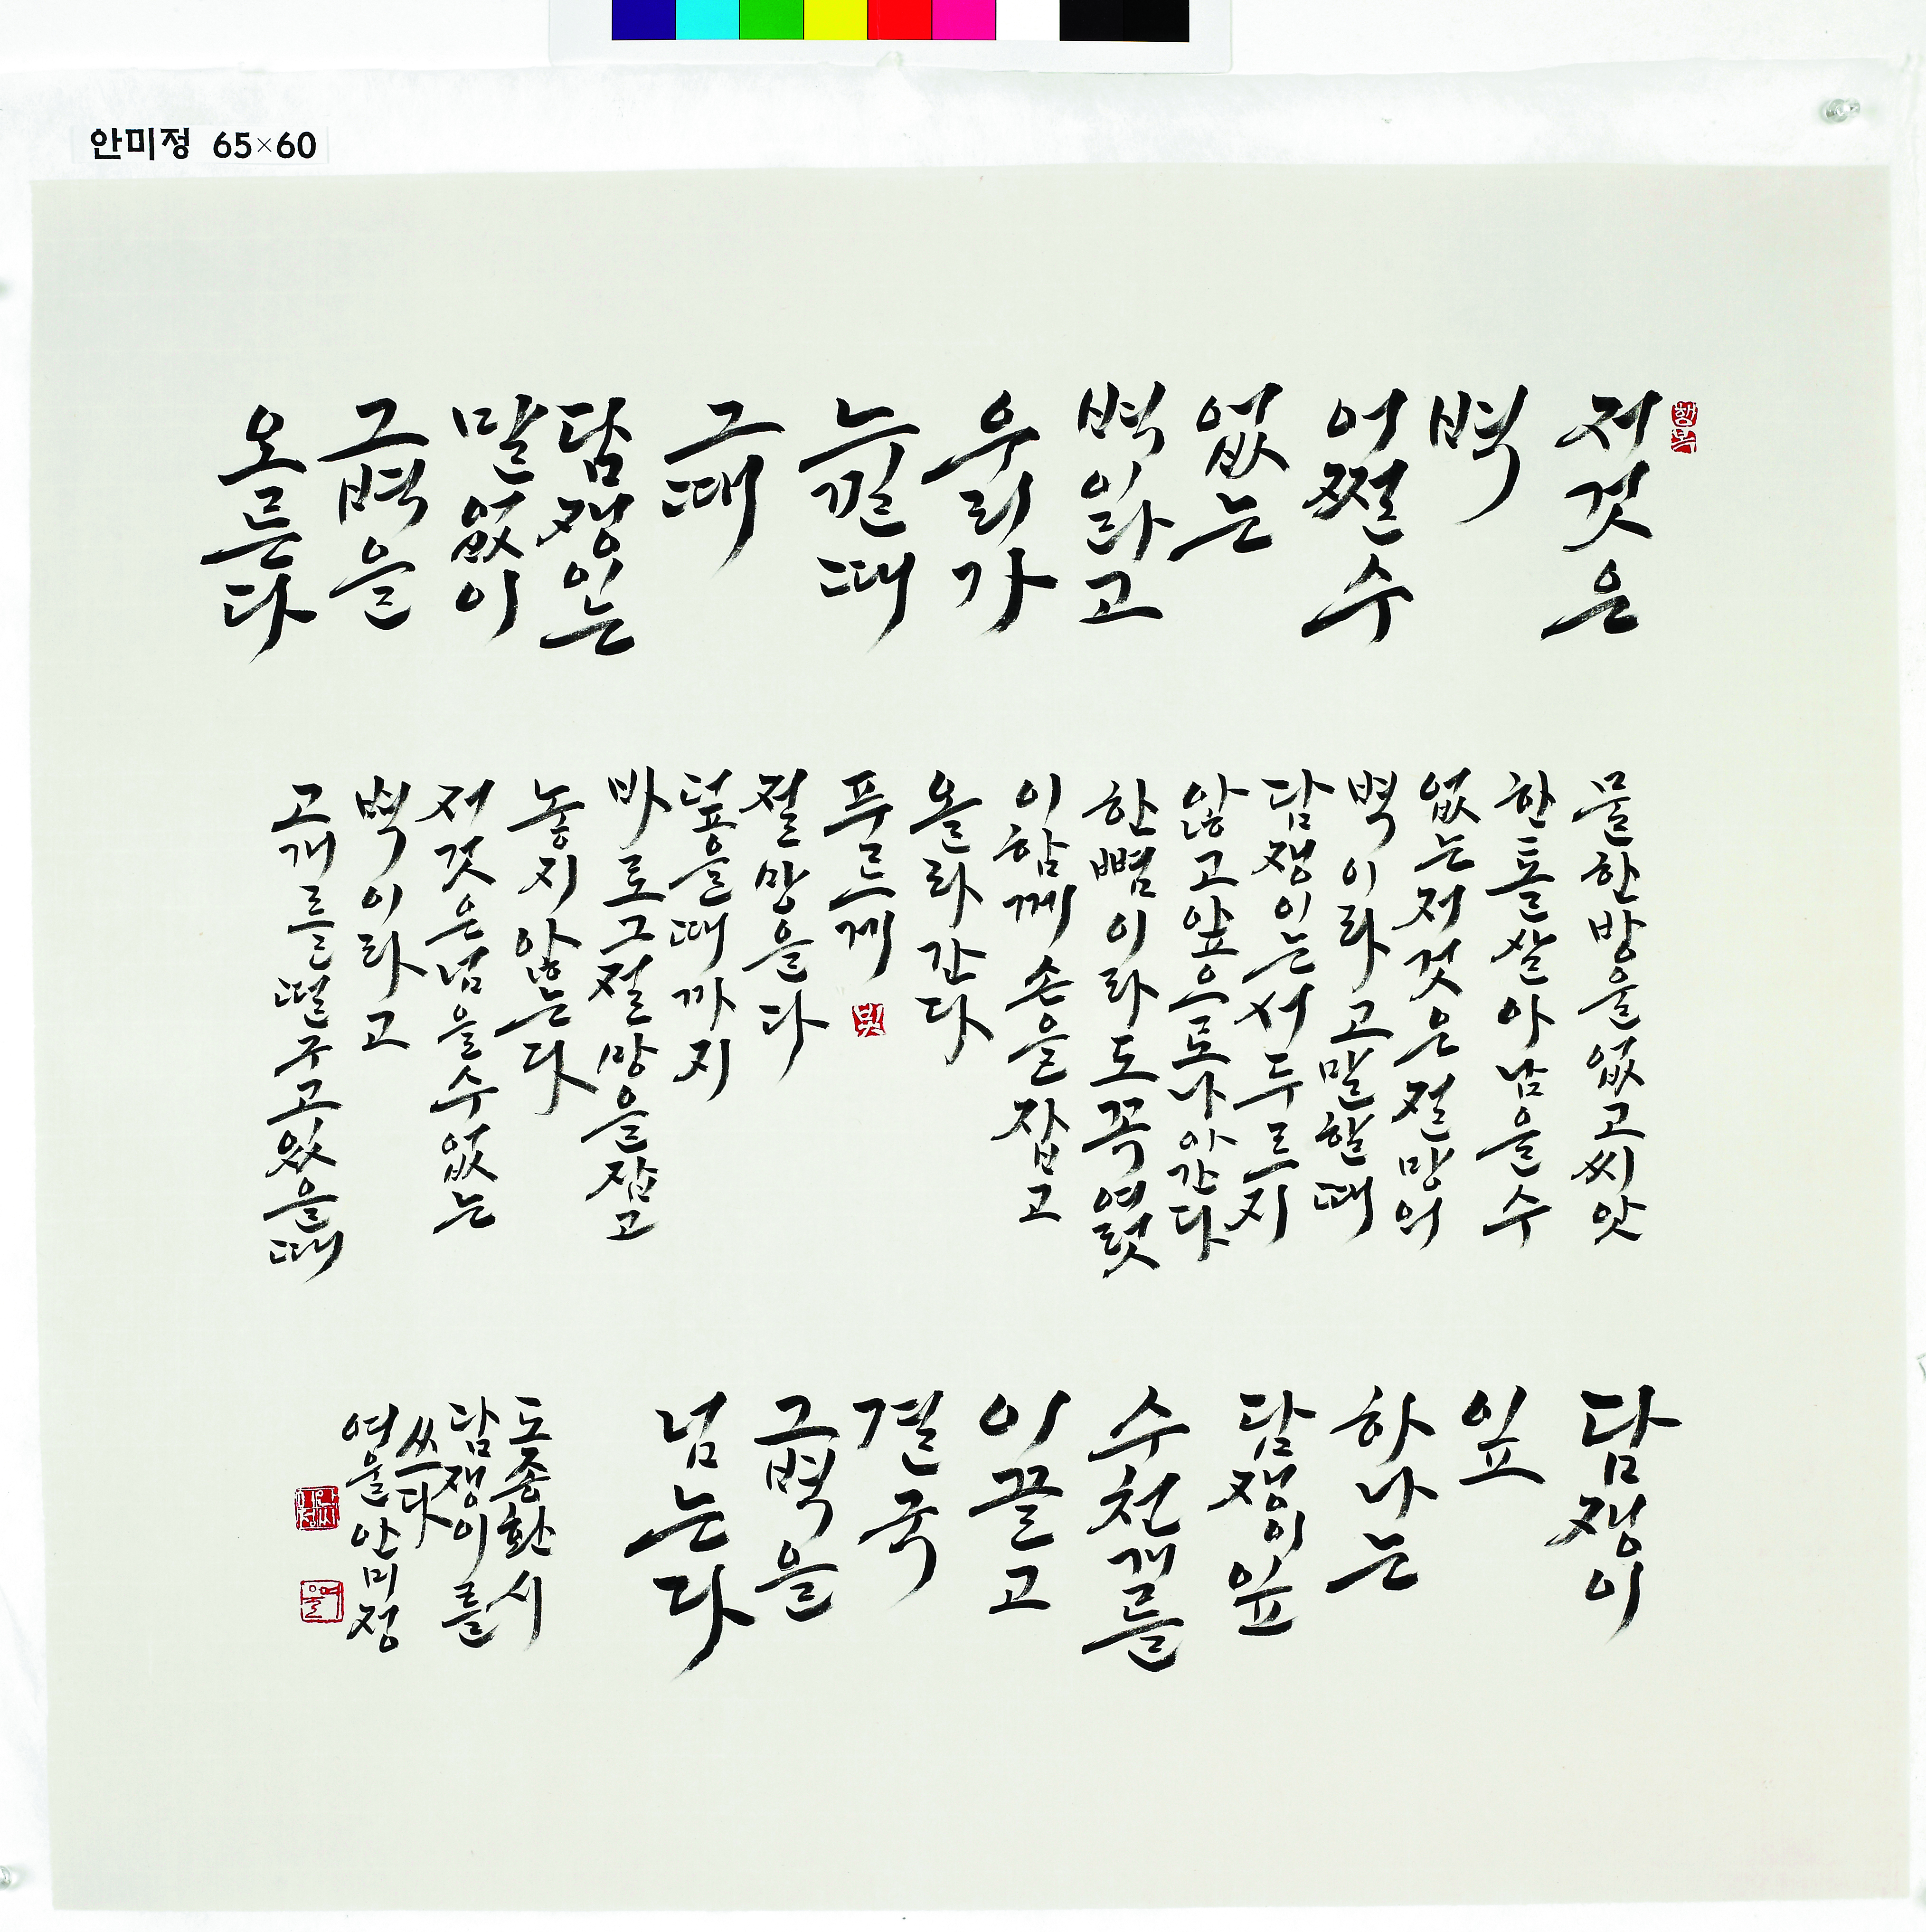 안미정 65×60
행복
저것은
벽
어쩔수
없는
벽이라고
우리가
느낄때
그때
담쟁이는
말없이
그벽을
오른다
물한방울없고씨앗
한톨살아남을수
없는저것은절망의
벽이라고말할때
담쟁이는서두르지
않고앞으로나아간다
한뼘이라도꼭여럿
이함께손을잡고
올라간다
푸르게
절망을다
덮을때까지
바로그절망을잡고
놓지않는다
저것은넘을수없는
벽이라고
고개를떨구고있을때
담쟁이
잎
하나는
담쟁이잎
수천개를
이끌고
결국
그벽을
넘는다
도종환시
담쟁이를
쓰다
여울안미정
여울